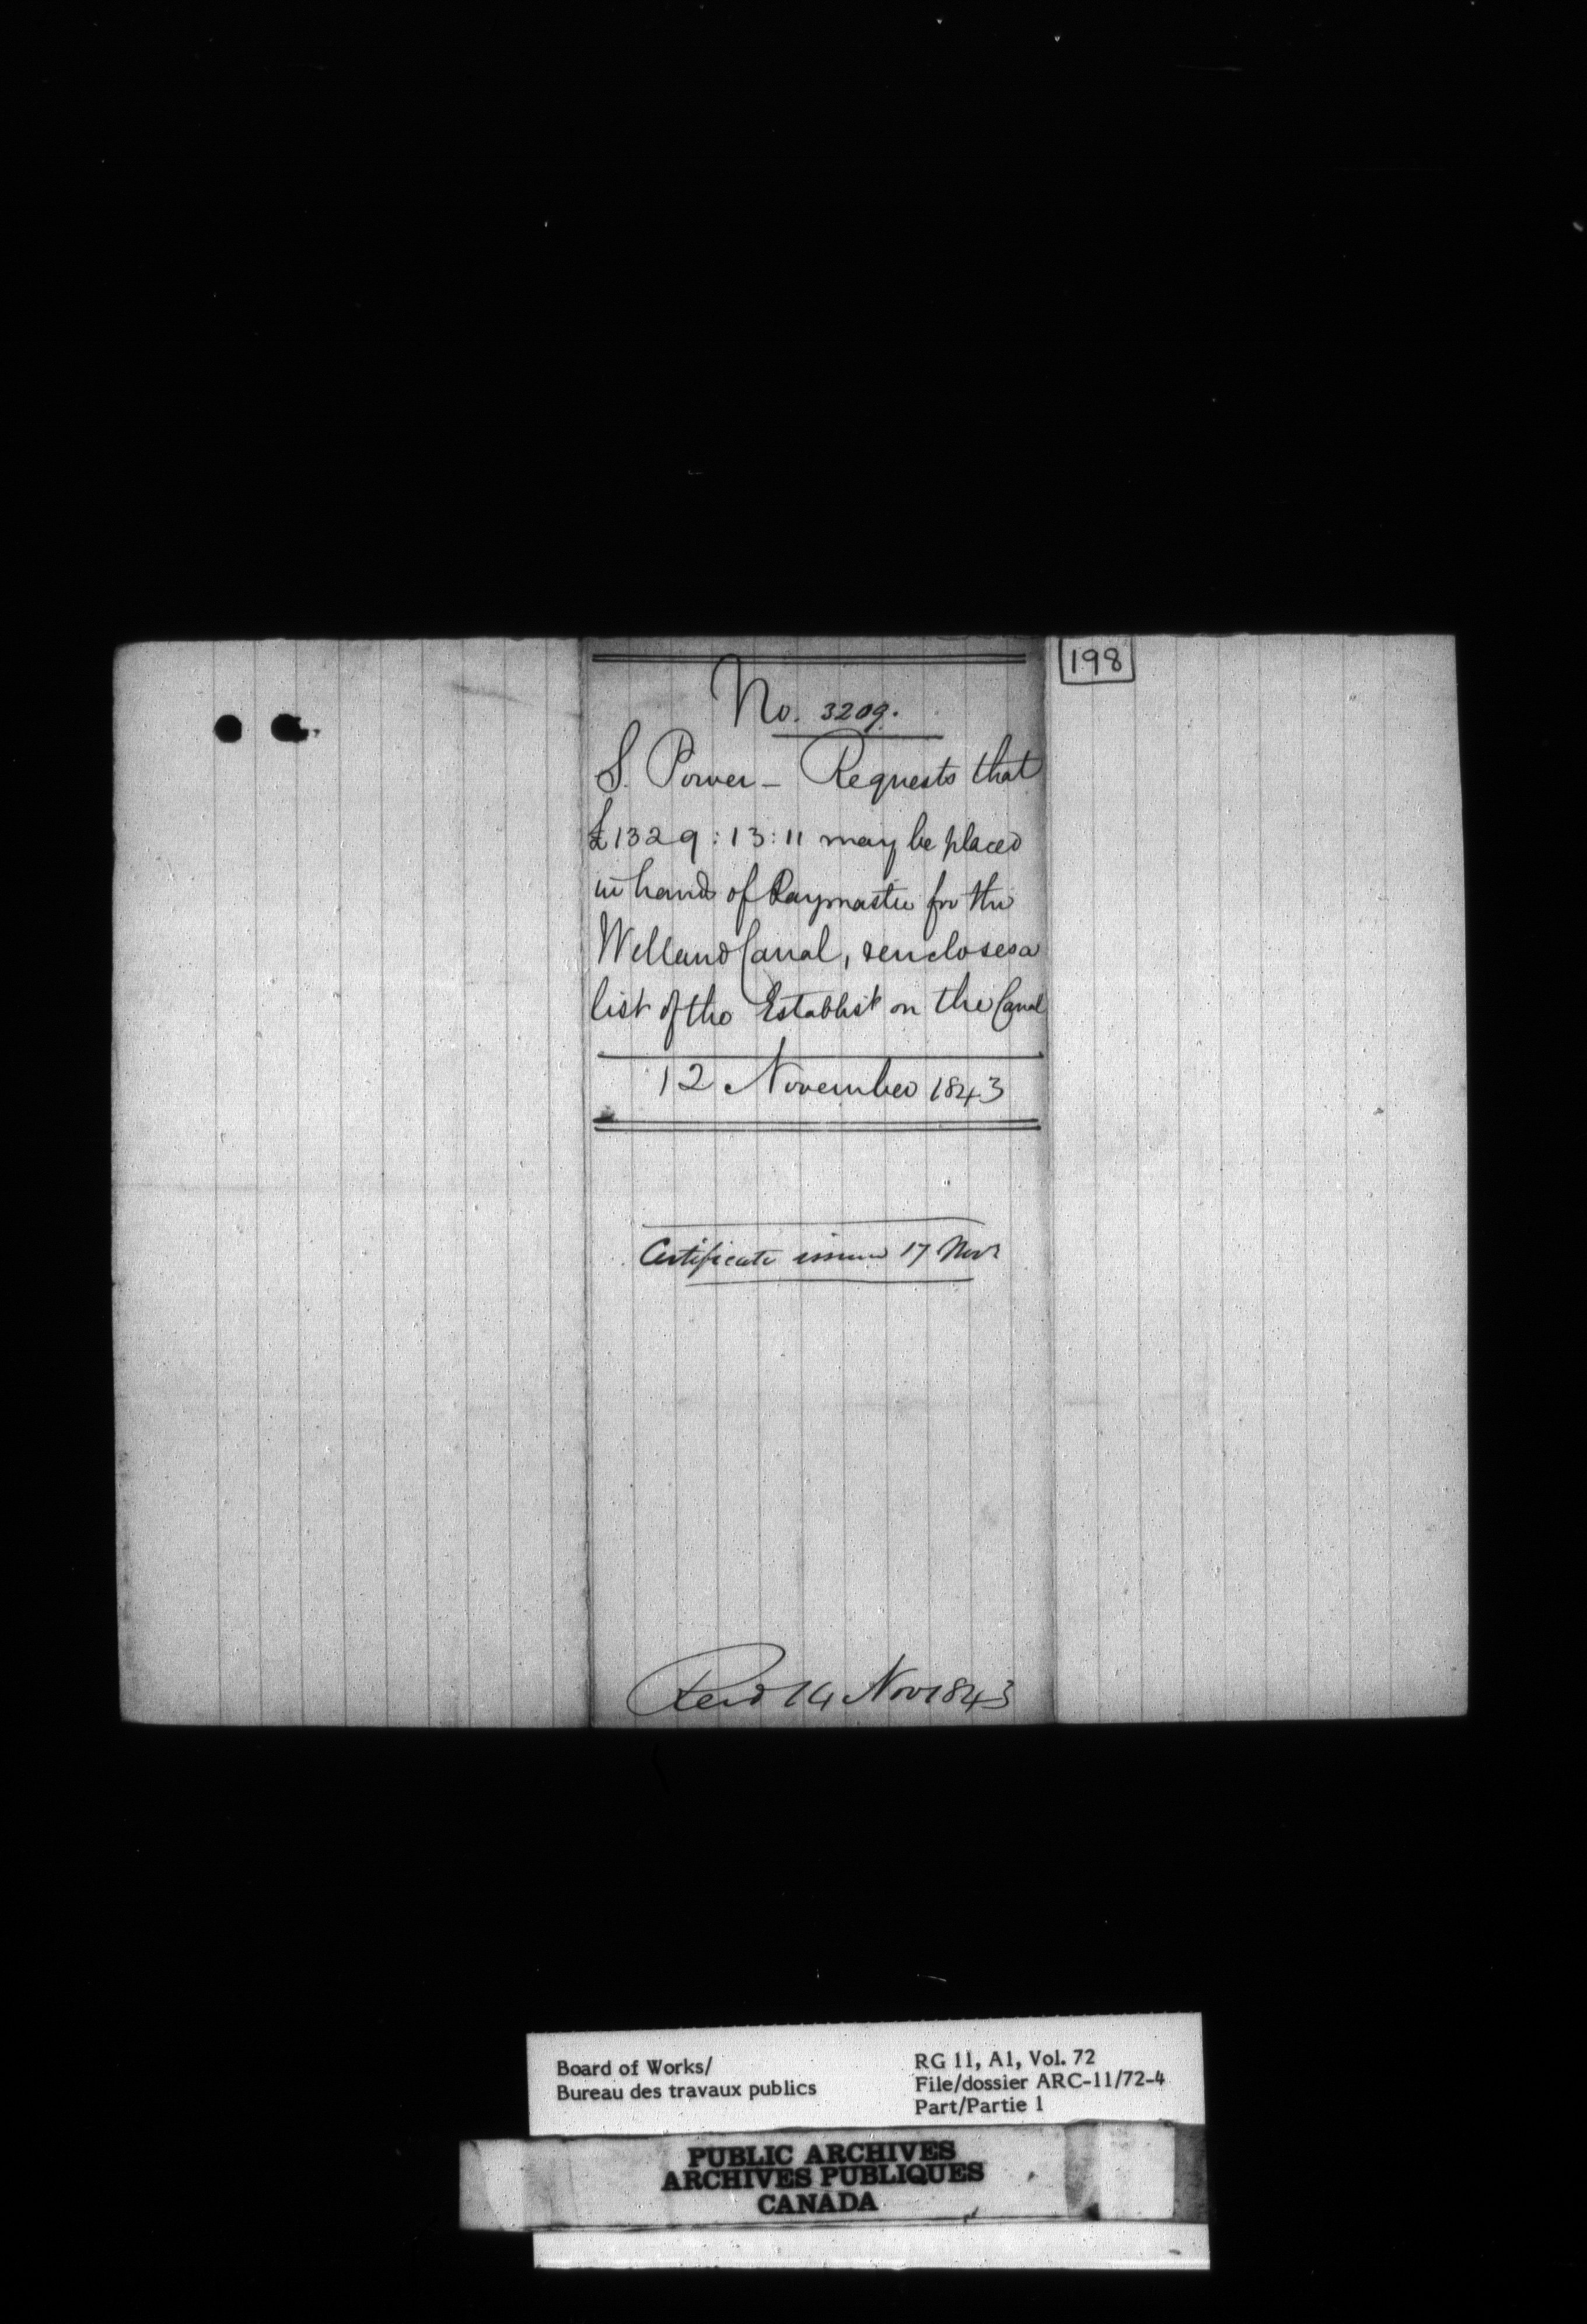 198
No. 3209.
S. Power - Requests that
£1329:13:11 may be placed
in hands of Paymaster for the
Welland Canal, & encloses a
list of the Establisht on the Canal
12 November 1843
Certificate issued 17 Novr
Recd 14 Nov 1843
Board of Works/
Bureau des travaux publics
RG 11, A1, Vol. 72
File/dossier ARC-11/72-4
Part/Partie 1
PUBLIC ARCHIVES
ARCHIVES PUBLIQUES
CANADA